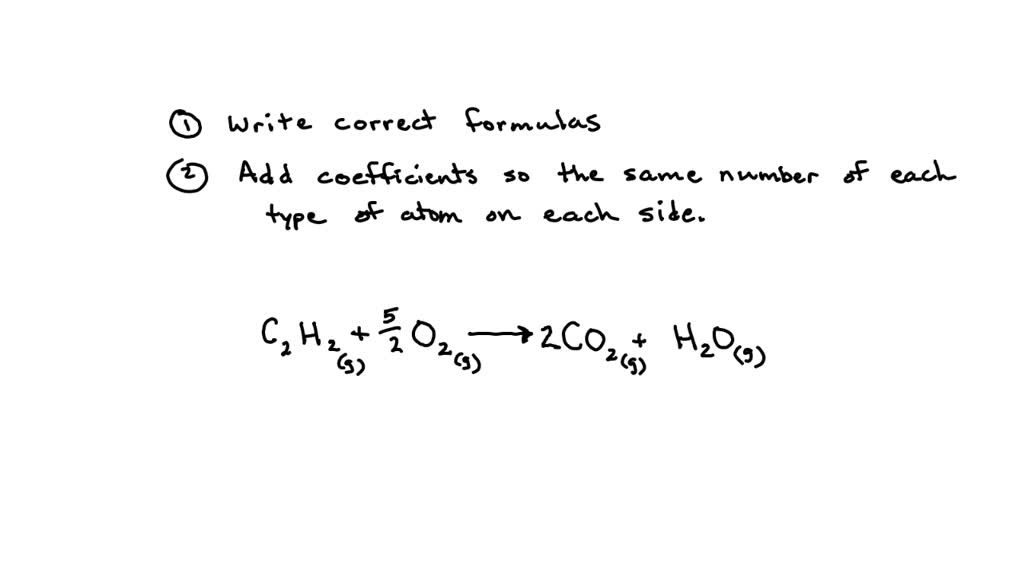 ① Write correct formulas
② Add coefficients so the same number of each
type of atom on each side.
C₂H₂(g) + 5/2 O₂(g) → 2CO₂(g) + H₂O(g)